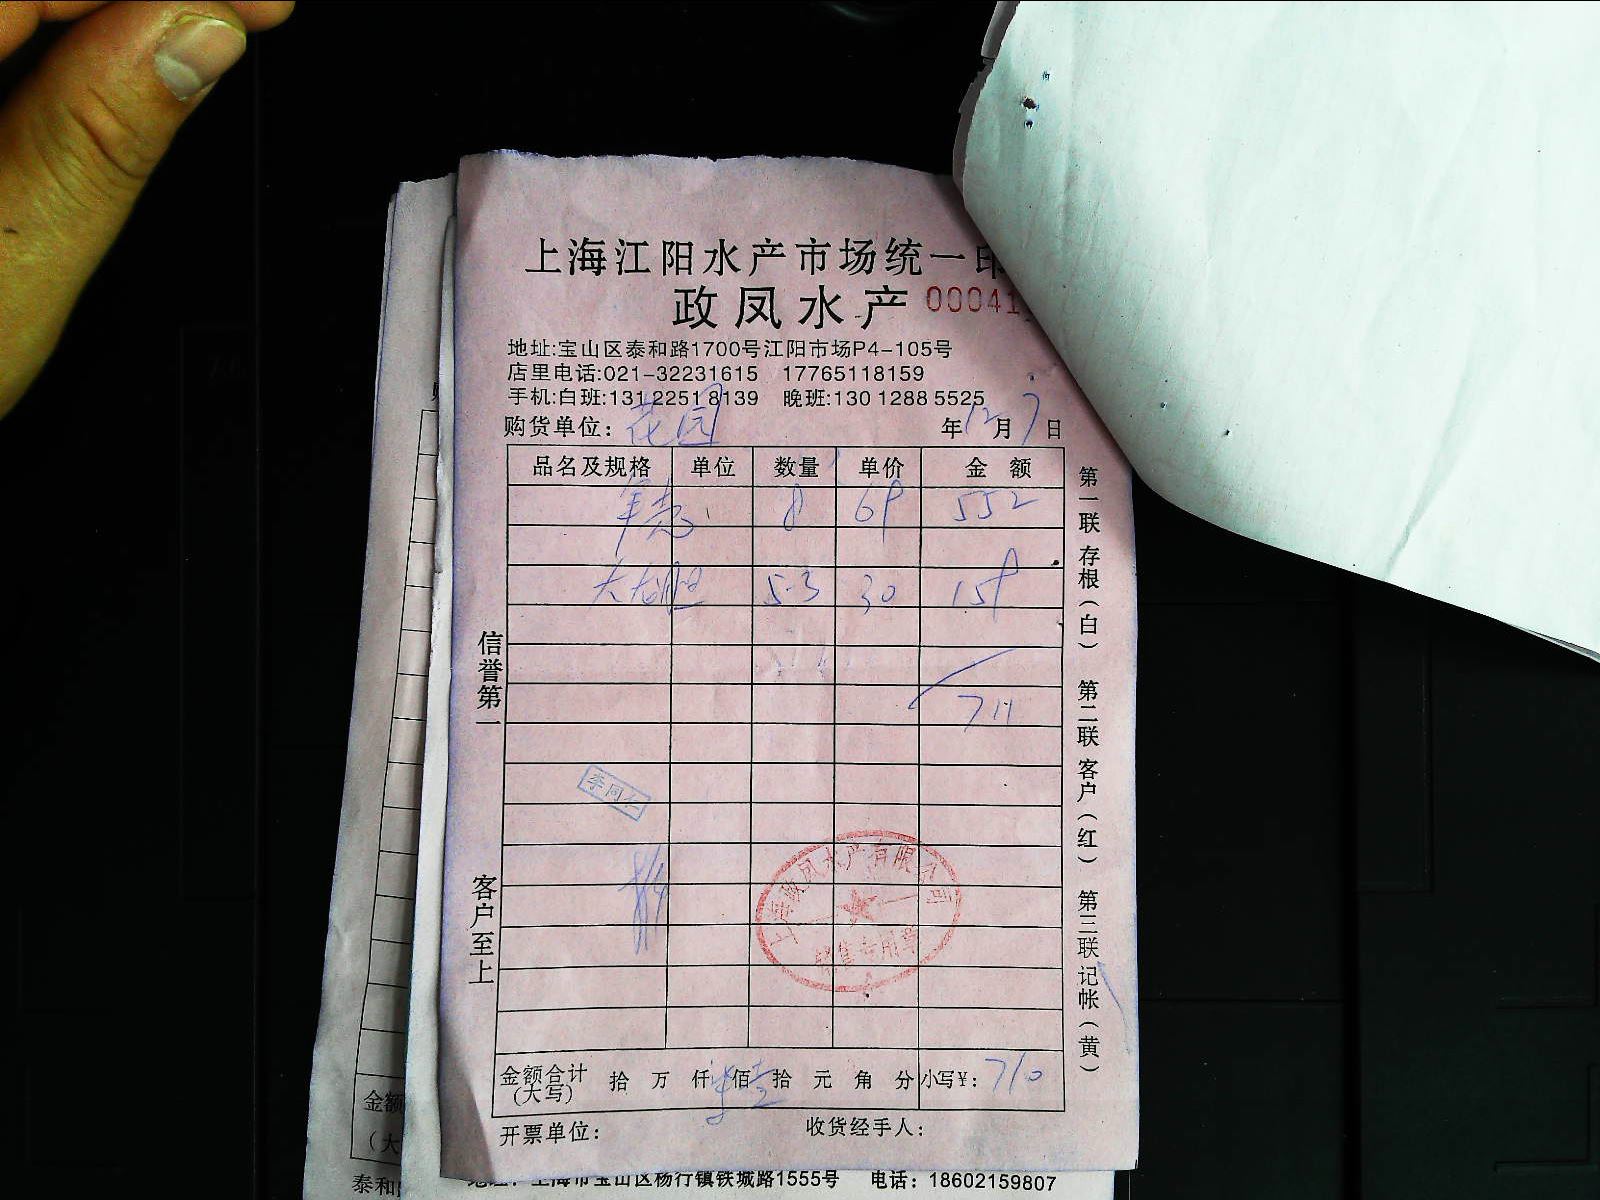 上海江阳水产市场统一印
政凤水产 00041
地址:宝山区泰和路1700号江阳市场P4-105号
店里电话:021-32231615 17765118159
手机:白班:131 2251 8139 晚班:130 1288 5525
购货单位: 花园 年12月7日
品名及规格 单位 数量 单价 金额
8 69 552
大 5.3 30 159
711
信誉第一
客户至上
李同仁
上海政凤水产有限公司
销售专用章
金额合计(大写) 拾 万 仟 佰 拾 元 角 分 小写¥: 710
开票单位: 收货经手人:
第一联 存根(白) 第二联 客户(红) 第三联 记帐(黄)
金额
(大
泰和
地址: 上海市宝山区杨行镇铁城路1555号 电话: 18602159807